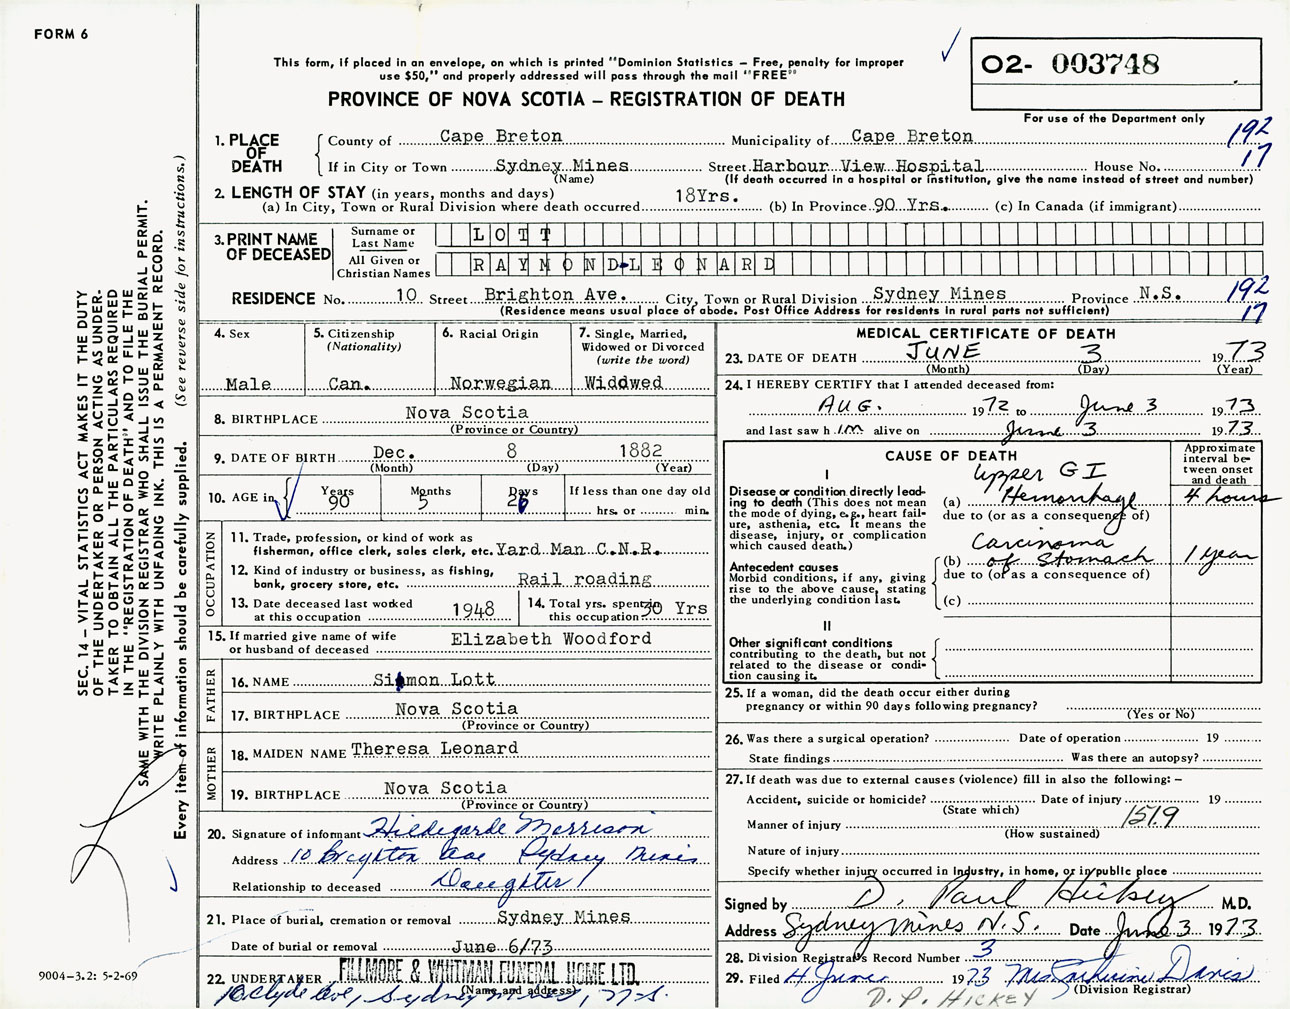 FORM 6
This form, if placed in an envelope, on which is printed "Dominion Statistics – Free, penalty for improper
use $50," and properly addressed will pass through the mail "FREE"
PROVINCE OF NOVA SCOTIA – REGISTRATION OF DEATH
O2- 003748
For use of the Department only
1. PLACE OF DEATH
County of Cape Breton Municipality of Cape Breton 192
If in City or Town Sydney Mines Street Harbour View Hospital House No. 17
(Name) (If death occurred in a hospital or institution, give the name instead of street and number)
2. LENGTH OF STAY (in years, months and days)
(a) In City, Town or Rural Division where death occurred 18Yrs. (b) In Province 90 Yrs. (c) In Canada (if immigrant)
3. PRINT NAME OF DECEASED
Surname or Last Name LOTT
All Given or Christian Names RAYMOND-LEONARD
RESIDENCE No. 10 Street Brighton Ave. City, Town or Rural Division Sydney Mines Province N.S. 192
(Residence means usual place of abode. Post Office Address for residents in rural parts not sufficient) 17
4. Sex
Male
5. Citizenship
(Nationality)
Can.
6. Racial Origin
Norwegian
7. Single, Married,
Widowed or Divorced
(write the word)
Widdwed
8. BIRTHPLACE Nova Scotia
(Province or Country)
9. DATE OF BIRTH Dec. 8 1882
(Month) (Day) (Year)
10. AGE in Years 90 Months 5 Days 26 If less than one day old
hrs. or min.
OCCUPATION
11. Trade, profession, or kind of work as
fisherman, office clerk, sales clerk, etc. Yard Man C.N.R.
12. Kind of industry or business, as fishing,
bank, grocery store, etc. Rail roading
13. Date deceased last worked
at this occupation 1948
14. Total yrs. spent in
this occupation 30 Yrs
15. If married give name of wife
or husband of deceased Elizabeth Woodford
FATHER
16. NAME Simon Lott
17. BIRTHPLACE Nova Scotia
(Province or Country)
MOTHER
18. MAIDEN NAME Theresa Leonard
19. BIRTHPLACE Nova Scotia
(Province or Country)
20. Signature of informant Hildegarde Morrison
Address 10 Brighton Ave Sydney Mines
Relationship to deceased Daughter
21. Place of burial, cremation or removal Sydney Mines
Date of burial or removal June 6/73
22. UNDERTAKER FILLMORE & WHITMAN FUNERAL HOME LTD.
(Name and address)
10 Clyde Ave, Sydney Mines, N.S.
MEDICAL CERTIFICATE OF DEATH
23. DATE OF DEATH JUNE 3 1973
(Month) (Day) (Year)
24. I HEREBY CERTIFY that I attended deceased from:
AUG. 1972 to June 3 1973
and last saw him alive on June 3 1973.
CAUSE OF DEATH
Approximate interval between onset and death
I
Disease or condition directly leading to death (This does not
mean the mode of dying, e.g., heart failure, asthenia, etc. It means the
disease, injury, or complication
which caused death.)
(a) Upper GI Hemorrhage 4 hours
due to (or as a consequence of)
Antecedent causes
Morbid conditions, if any, giving
rise to the above cause, stating
the underlying condition last.
(b) Carcinoma of Stomach 1 year
due to (or as a consequence of)
(c)
II
Other significant conditions
contributing to the death, but not
related to the disease or condition causing it.
25. If a woman, did the death occur either during
pregnancy or within 90 days following pregnancy?
(Yes or No)
26. Was there a surgical operation? Date of operation 19
State findings Was there an autopsy?
27. If death was due to external causes (violence) fill in also the following: –
Accident, suicide or homicide? Date of injury 19
(State which)
151.9
Manner of injury
(How sustained)
Nature of injury
Specify whether injury occurred in industry, in home, or in public place
Signed by D. Paul Hickey M.D.
Address Sydney Mines N.S. Date June 3 1973
28. Division Registrar's Record Number 3
29. Filed 4 June 1973 Mrs. Catherine Davis
(Division Registrar)
D. P. HICKEY
SEC. 14 – VITAL STATISTICS ACT MAKES IT THE DUTY
OF THE UNDERTAKER OR PERSON ACTING AS UNDERTAKER TO OBTAIN ALL THE PARTICULARS REQUIRED
IN THE "REGISTRATION OF DEATH" AND TO FILE THE
SAME WITH THE DIVISION REGISTRAR WHO SHALL ISSUE THE BURIAL PERMIT.
WRITE PLAINLY WITH UNFADING INK. THIS IS A PERMANENT RECORD.
Every item of information should be carefully supplied. (See reverse side for instructions.)
9004-3.2: 5-2-69